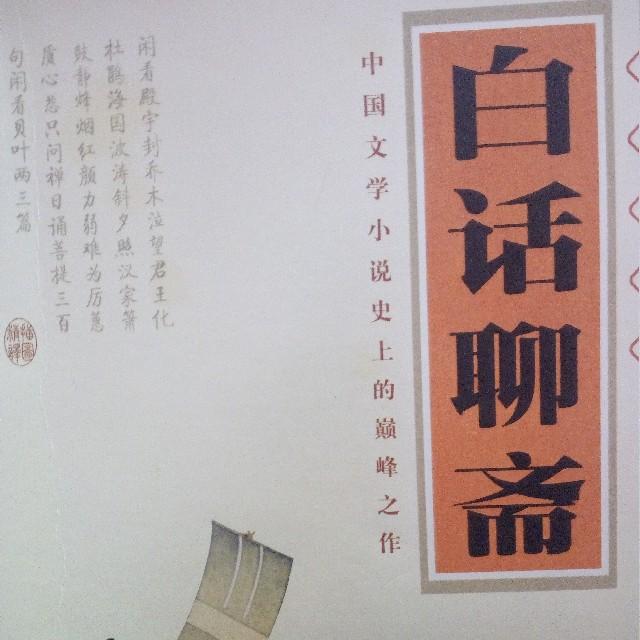 白话聊斋
中国文学小说史上的巅峰之作
闲看殿宇封乔木泣望君王化
杜鹃海国波涛斜夕照汉家箫
鼓静烽烟红颜力弱难为厉蕙
质心悲只问禅日诵菩提三百
句闲看贝叶两三篇